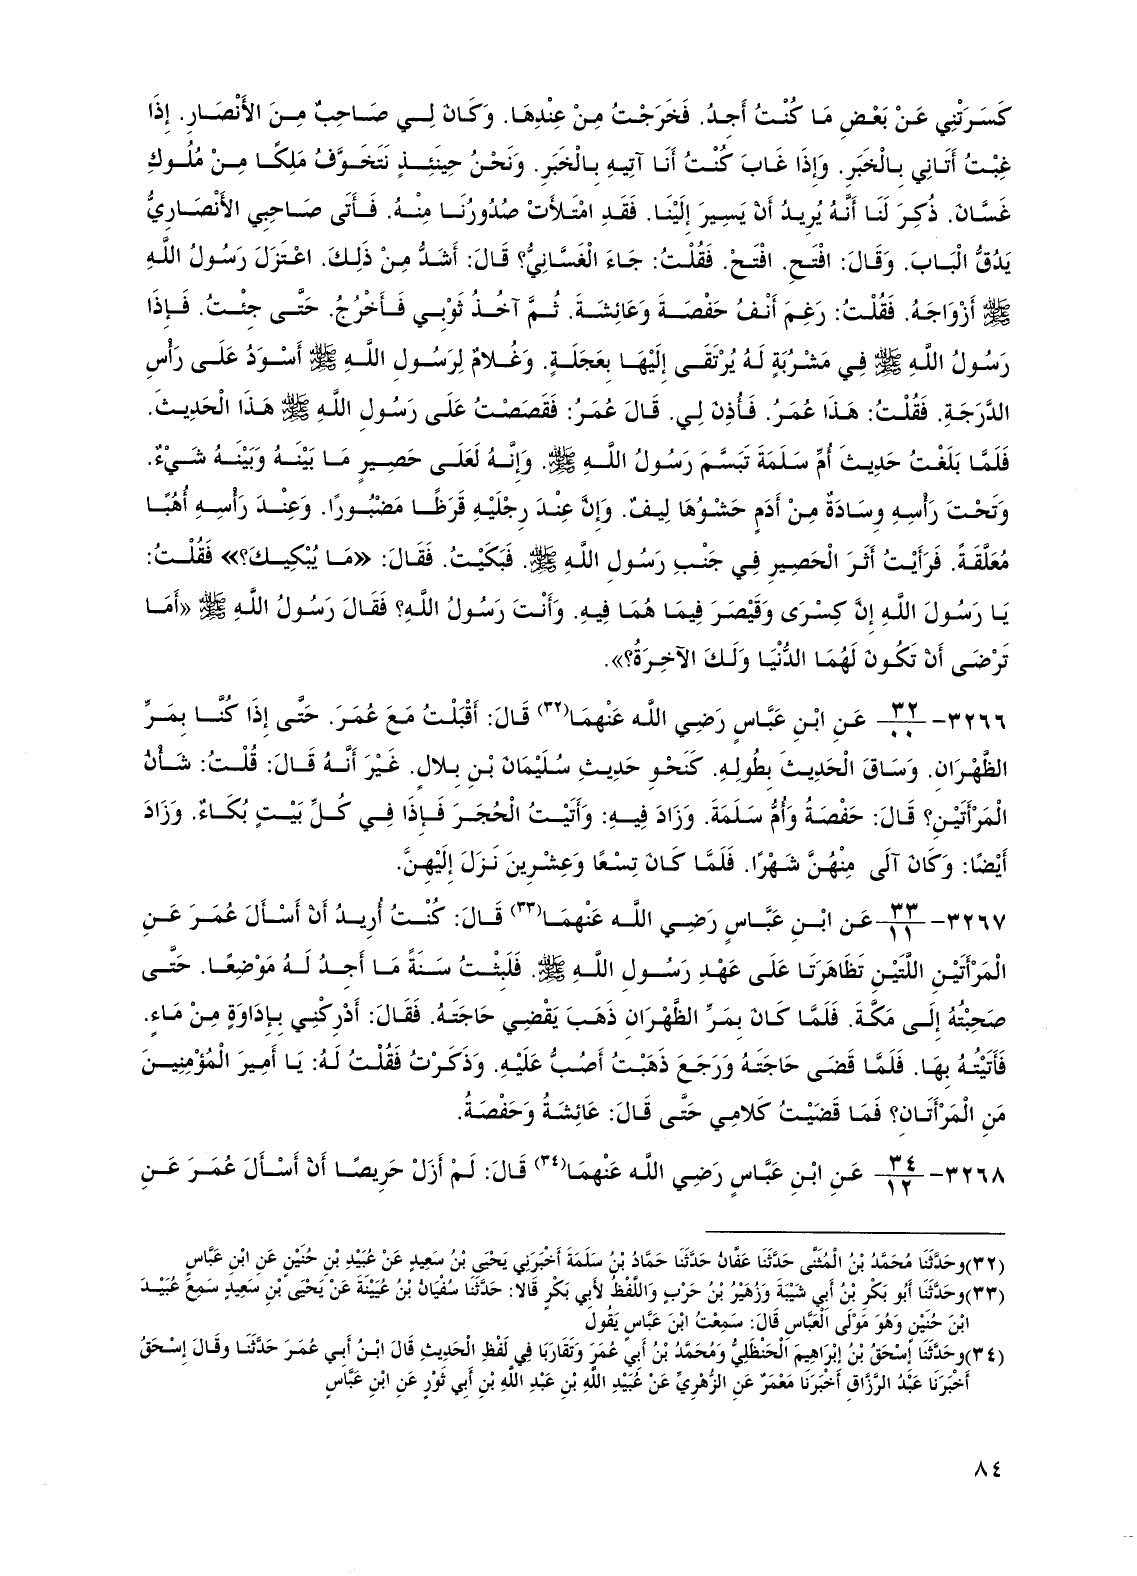 كَسَرَتْنِي عَنْ بَعْضِ مَا كُنْتُ أَجِدُ. فَخَرَجْتُ مِنْ عِنْدِهَا. وَكَانَ لِي صَاحِبٌ مِنَ الأَنْصَارِ. إِذَا
غِبْتُ أَتَانِي بِالْخَبَرِ. وَإِذَا غَابَ كُنْتُ أَنَا آتِيهِ بِالْخَبَرِ. وَنَحْنُ حِينَئِذٍ نَتَخَوَّفُ مَلِكًا مِنْ مُلُوكِ
غَسَّانَ. ذُكِرَ لَنَا أَنَّهُ يُرِيدُ أَنْ يَسِيرَ إِلَيْنَا. فَقَدِ امْتَلأَتْ صُدُورُنَا مِنْهُ. فَأَتَى صَاحِبِي الأَنْصَارِيُّ
يَدُقُّ الْبَابَ. وَقَالَ: افْتَحِ. افْتَحْ. فَقُلْتُ: جَاءَ الْغَسَّانِيُّ؟ قَالَ: أَشَدُّ مِنْ ذَلِكَ. اعْتَزَلَ رَسُولُ اللَّهِ
ﷺ أَزْوَاجَهُ. فَقُلْتُ: رَغِمَ أَنْفُ حَفْصَةَ وَعَائِشَةَ. ثُمَّ آخُذُ ثَوْبِي فَأَخْرُجُ. حَتَّى جِئْتُ. فَإِذَا
رَسُولُ اللَّهِ ﷺ فِي مَشْرُبَةٍ لَهُ يُرْتَقَى إِلَيْهَا بِعَجَلَةٍ. وَغُلامٌ لِرَسُولِ اللَّهِ ﷺ أَسْوَدُ عَلَى رَأْسِ
الدَّرَجَةِ. فَقُلْتُ: هَذَا عُمَرُ. فَأُذِنَ لِي. قَالَ عُمَرُ: فَقَصَصْتُ عَلَى رَسُولِ اللَّهِ ﷺ هَذَا الْحَدِيثَ.
فَلَمَّا بَلَغْتُ حَدِيثَ أُمِّ سَلَمَةَ تَبَسَّمَ رَسُولُ اللَّهِ ﷺ. وَإِنَّهُ لَعَلَى حَصِيرٍ مَا بَيْنَهُ وَبَيْنَهُ شَيْءٌ.
وَتَحْتَ رَأْسِهِ وِسَادَةٌ مِنْ أَدَمٍ حَشْوُهَا لِيفٌ. وَإِنَّ عِنْدَ رِجْلَيْهِ قَرَظًا مَضْبُورًا. وَعِنْدَ رَأْسِهِ أُهُبًا
مُعَلَّقَةً. فَرَأَيْتُ أَثَرَ الْحَصِيرِ فِي جَنْبِ رَسُولِ اللَّهِ ﷺ. فَبَكَيْتُ. فَقَالَ: «مَا يُبْكِيكَ؟» فَقُلْتُ:
يَا رَسُولَ اللَّهِ إِنَّ كِسْرَى وَقَيْصَرَ فِيمَا هُمَا فِيهِ. وَأَنْتَ رَسُولُ اللَّهِ؟ فَقَالَ رَسُولُ اللَّهِ ﷺ «أَمَا
تَرْضَى أَنْ تَكُونَ لَهُمَا الدُّنْيَا وَلَكَ الآخِرَةُ؟».
٣٢٦٦- ٣٢/٠٠- عَنِ ابْنِ عَبَّاسٍ رَضِي اللَّه عَنْهمَا(٣٢) قَالَ: أَقْبَلْتُ مَعَ عُمَرَ. حَتَّى إِذَا كُنَّا بِمَرِّ
الظَّهْرَانِ. وَسَاقَ الْحَدِيثَ بِطُولِهِ. كَنَحْوِ حَدِيثِ سُلَيْمَانَ بْنِ بِلالٍ. غَيْرَ أَنَّهُ قَالَ: قُلْتُ: شَأْنُ
الْمَرْأَتَيْنِ؟ قَالَ: حَفْصَةُ وَأُمُّ سَلَمَةَ. وَزَادَ فِيهِ: وَأَتَيْتُ الْحُجَرَ فَإِذَا فِي كُلِّ بَيْتٍ بُكَاءٌ. وَزَادَ
أَيْضًا: وَكَانَ آلَى مِنْهُنَّ شَهْرًا. فَلَمَّا كَانَ تِسْعًا وَعِشْرِينَ نَزَلَ إِلَيْهِنَّ.
٣٢٦٧- ٣٣/١١- عَنِ ابْنِ عَبَّاسٍ رَضِي اللَّه عَنْهمَا(٣٣) قَالَ: كُنْتُ أُرِيدُ أَنْ أَسْأَلَ عُمَرَ عَنِ
الْمَرْأَتَيْنِ اللَّتَيْنِ تَظَاهَرَتَا عَلَى عَهْدِ رَسُولِ اللَّهِ ﷺ. فَلَبِثْتُ سَنَةً مَا أَجِدُ لَهُ مَوْضِعًا. حَتَّى
صَحِبْتُهُ إِلَى مَكَّةَ. فَلَمَّا كَانَ بِمَرِّ الظَّهْرَانِ ذَهَبَ يَقْضِي حَاجَتَهُ. فَقَالَ: أَدْرِكْنِي بِإِدَاوَةٍ مِنْ مَاءٍ.
فَأَتَيْتُهُ بِهَا. فَلَمَّا قَضَى حَاجَتَهُ وَرَجَعَ ذَهَبْتُ أَصُبُّ عَلَيْهِ. وَذَكَرْتُ فَقُلْتُ لَهُ: يَا أَمِيرَ الْمُؤْمِنِينَ
مَنِ الْمَرْأَتَانِ؟ فَمَا قَضَيْتُ كَلامِي حَتَّى قَالَ: عَائِشَةُ وَحَفْصَةُ.
٣٢٦٨- ٣٤/١٢- عَنِ ابْنِ عَبَّاسٍ رَضِي اللَّه عَنْهمَا(٣٤) قَالَ: لَمْ أَزَلْ حَرِيصًا أَنْ أَسْأَلَ عُمَرَ عَنِ
(٣٢)وحَدَّثَنَا مُحَمَّدُ بْنُ الْمُثَنَّى حَدَّثَنَا عَفَّانُ حَدَّثَنَا حَمَّادُ بْنُ سَلَمَةَ أَخْبَرَنِي يَحْيَى بْنُ سَعِيدٍ عَنْ عُبَيْدِ بْنِ حُنَيْنٍ عَنِ ابْنِ عَبَّاسٍ
(٣٣)وحَدَّثَنَا أَبُو بَكْرِ بْنُ أَبِي شَيْبَةَ وَزُهَيْرُ بْنُ حَرْبٍ وَاللَّفْظُ لأَبِي بَكْرٍ قَالا: حَدَّثَنَا سُفْيَانُ بْنُ عُيَيْنَةَ عَنْ يَحْيَى بْنِ سَعِيدٍ سَمِعَ عُبَيْدَ
ابْنَ حُنَيْنٍ وَهُوَ مَوْلَى الْعَبَّاسِ قَالَ: سَمِعْتُ ابْنَ عَبَّاسٍ يَقُولُ
(٣٤)وحَدَّثَنَا إِسْحَقُ بْنُ إِبْرَاهِيمَ الْحَنْظَلِيُّ وَمُحَمَّدُ بْنُ أَبِي عُمَرَ وَتَقَارَبَا فِي لَفْظِ الْحَدِيثِ قَالَ ابْنُ أَبِي عُمَرَ حَدَّثَنَا وقَالَ إِسْحَقُ
أَخْبَرَنَا عَبْدُ الرَّزَّاقِ أَخْبَرَنَا مَعْمَرٌ عَنِ الزُّهْرِيِّ عَنْ عُبَيْدِ اللَّهِ بْنِ عَبْدِ اللَّهِ بْنِ أَبِي ثَوْرٍ عَنِ ابْنِ عَبَّاسٍ
٨٤